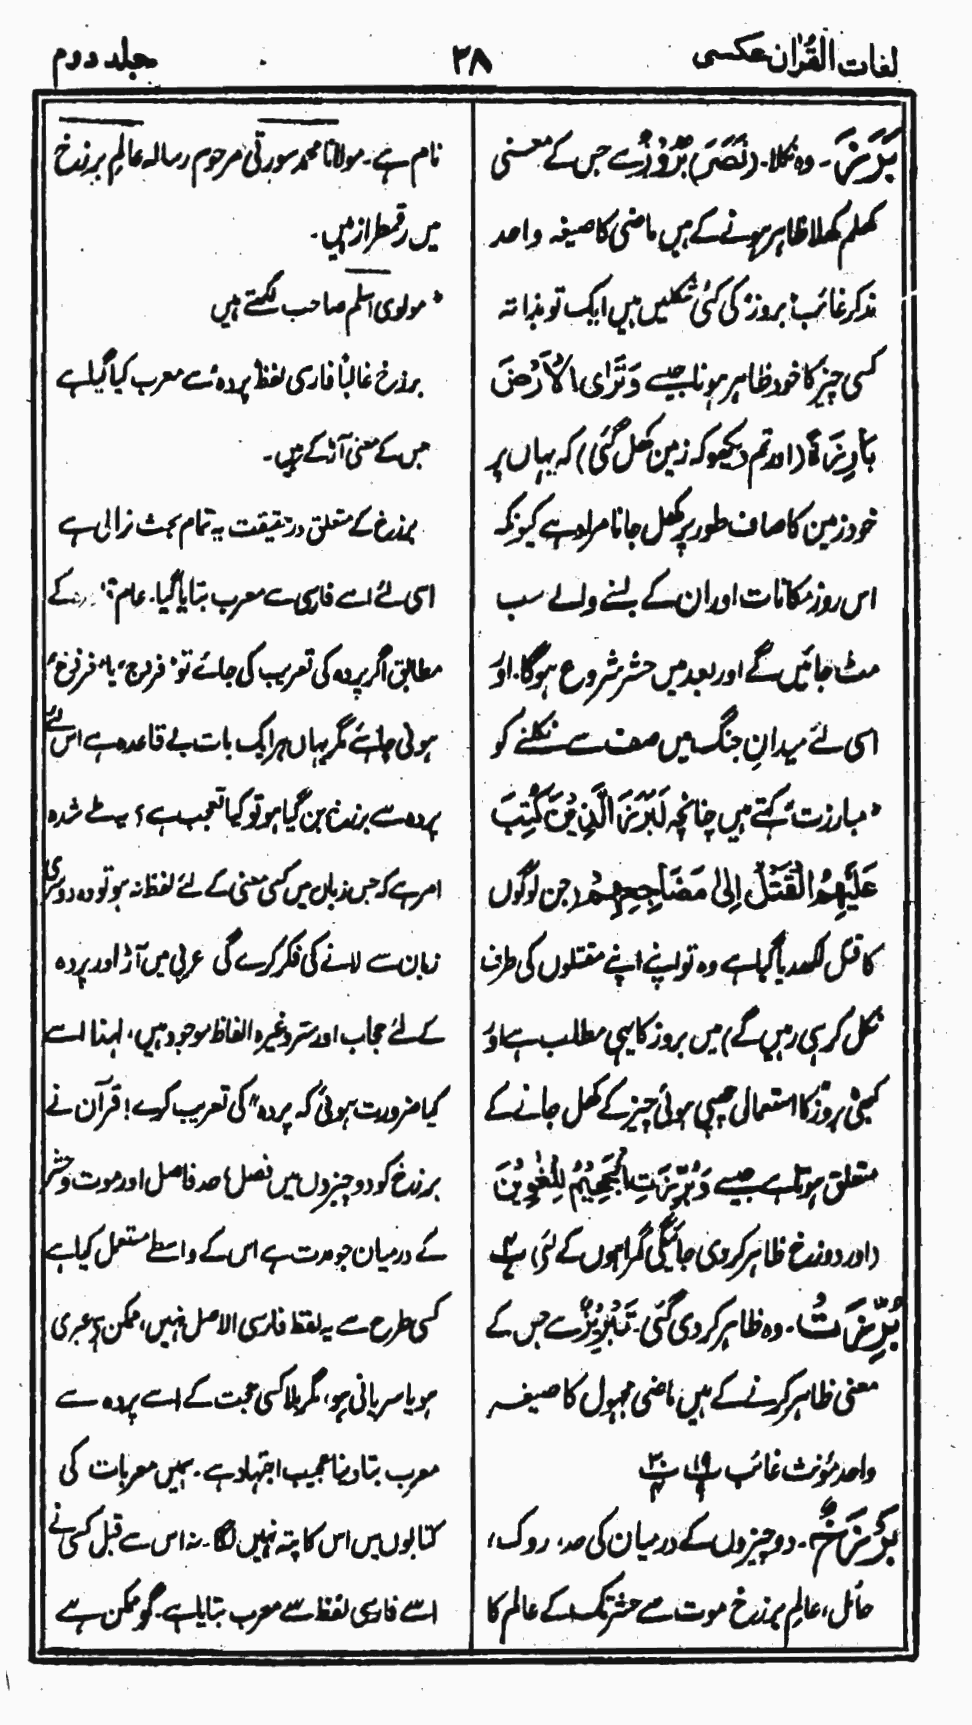 لغات القرآن عکسی
۲۸
جلد دوم
بَرَزَ۔ وہ نکلا۔ (نَصَرَ) بُرُوْزٌ سے جس کے معنی
کھلم کھلا ظاہر ہونے کے ہیں ماضی کا صیغہ واحد
مذکر غائب، بروز کی کئی شکلیں ہیں ایک تو بذاتہ
کسی چیز کا خود ظاہر ہونا جیسے وَتَرَی الْاَرْضَ
بَارِزَۃً (اور تم دیکھو کہ زمین کھل گئی) کہ یہاں پر
خود زمین کا صاف طور پر کھل جانا مراد ہے کیونکہ
اس روز مکانات اور ان کے بسنے والے سب
مٹ جائیں گے اور بعد میں حشر شروع ہوگا۔ اور
اسی لئے میدانِ جنگ میں صف سے نکلنے کو
مبارزت کہتے ہیں چنانچہ لَبَرَزَ الَّذِیْنَ کُتِبَ
عَلَیْهِمُ الْقَتْلُ اِلٰی مَضَاجِعِهِمْ (جن لوگوں
کا قتل لکھ دیا گیا ہے وہ تو اپنے اپنے مقتلوں کی طرف
نکل کر ہی رہیں گے) میں بروز کا یہی مطلب ہے اور
کبھی بروز کا استعمال چھپی ہوئی چیز کے کھل جانے کے
متعلق ہوتا ہے جیسے وَبُرِّزَتِ الْجَحِیْمُ لِلْغٰوِیْنَ
(اور دوزخ ظاہر کردی جائیگی گمراہوں کے لئے)
بُرِّزَتْ۔ وہ ظاہر کردی گئی۔ تَبْرِیْزٌ سے جس کے
معنی ظاہر کرنے کے ہیں ماضی مجہول کا صیغہ
واحد مؤنث غائب
بَرْزَخٌ۔ دو چیزوں کے درمیان کی حد، روک،
حائل، عالمِ برزخ موت سے حشر تک کے عالم کا
نام ہے۔ مولانا محمد سورتی مرحوم رسالہ عالمِ برزخ
میں رقمطراز ہیں۔
مولوی اسلم صاحب لکھتے ہیں
برزخ غالباً فارسی لفظ پردہ سے معرب کیا گیا ہے
جس کے معنی آڑ کے ہیں۔
برزخ کے متعلق درحقیقت یہ تمام بحث نرالی ہے
اسی لئے اسے فارسی سے معرب بتایا گیا۔ عام کے
مطابق اگر پردہ کی تعریب کی جائے تو فردج یا فرزخ
ہونی چاہئے مگر یہاں ہر ایک بات بے قاعدہ ہے اس لئے
پردہ سے برزخ بن گیا ہو تو کیا تعجب ہے؟ یہ طے شدہ
امر ہے کہ جس زبان میں کسی معنی کے لئے لفظ نہ ہو تو وہ دوسری
زبان سے لانے کی فکر کرے گی عربی میں آڑ اور پردہ
کے لئے حجاب اور ستر وغیرہ الفاظ موجود ہیں، لہذا اسے
کیا ضرورت ہوئی کہ پردہ کی تعریب کرے! قرآن نے
برزخ کو دو چیزوں میں فصل، حد فاصل اور موت و حشر
کے درمیان جو مدت ہے اس کے واسطے مستعمل کیا ہے
کسی طرح سے یہ لفظ فارسی الاصل نہیں، ممکن ہے عبری
ہو یا سریانی ہو، مگر بلا کسی حجت کے اسے پردہ سے
معرب بتا دینا عجیب اجتہاد ہے۔ ہمیں معربات کی
کتابوں میں اس کا پتہ نہیں لگا۔ نہ اس سے قبل کسی نے
اسے فارسی لفظ سے معرب بتایا ہے۔ گو ممکن ہے